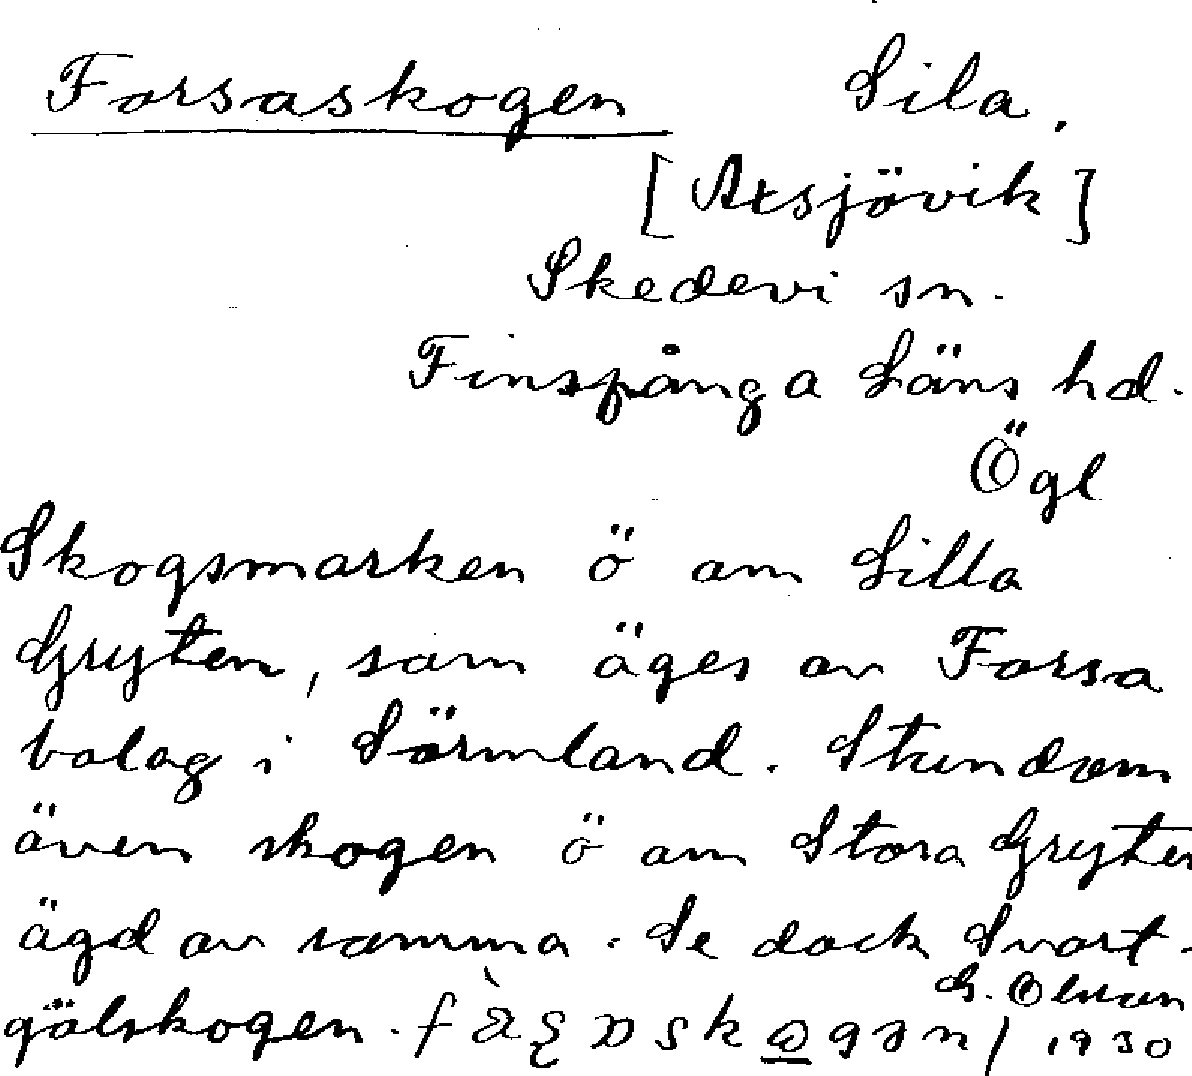 Forsaskogen Lila.
[Axsjövik]
Skedevi sn.
Finspånga Läns hd.
Ögl
Skogsmarken ö om Lilla
Gryten, som äges av Forsa
bolag i Sörmland. Stundom
även skogen ö om Stora Gryten
ägd av samma. Se dock Svart-
gölskogen.
G. Olsson
1930